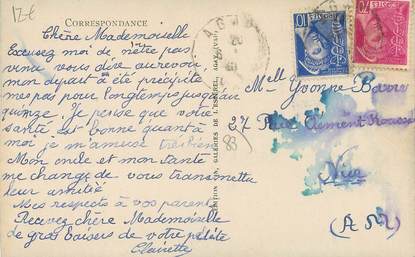 12€
CORRESPONDANCE
Chère Mademoiselle
Excusez moi de n'être pas
venu vous dire au revoir,
mon depart a été précipité
mes pas pour longtemps jusqu'au
quinze. Je pense que votre
santé est bonne quant à
moi je m'amuse très bien
Mon oncle et mon
me charge de vous transmettre
leur amitié
Mes respects à vos parents
Recevez chère Mademoiselle
de gros baisers de votre
Clairette
GALERIES DE L'ESTEREL
POSTES
10
POSTES
70
Mell Yvonne
27 Rue Clément Roassal
83
Nice
(A M)